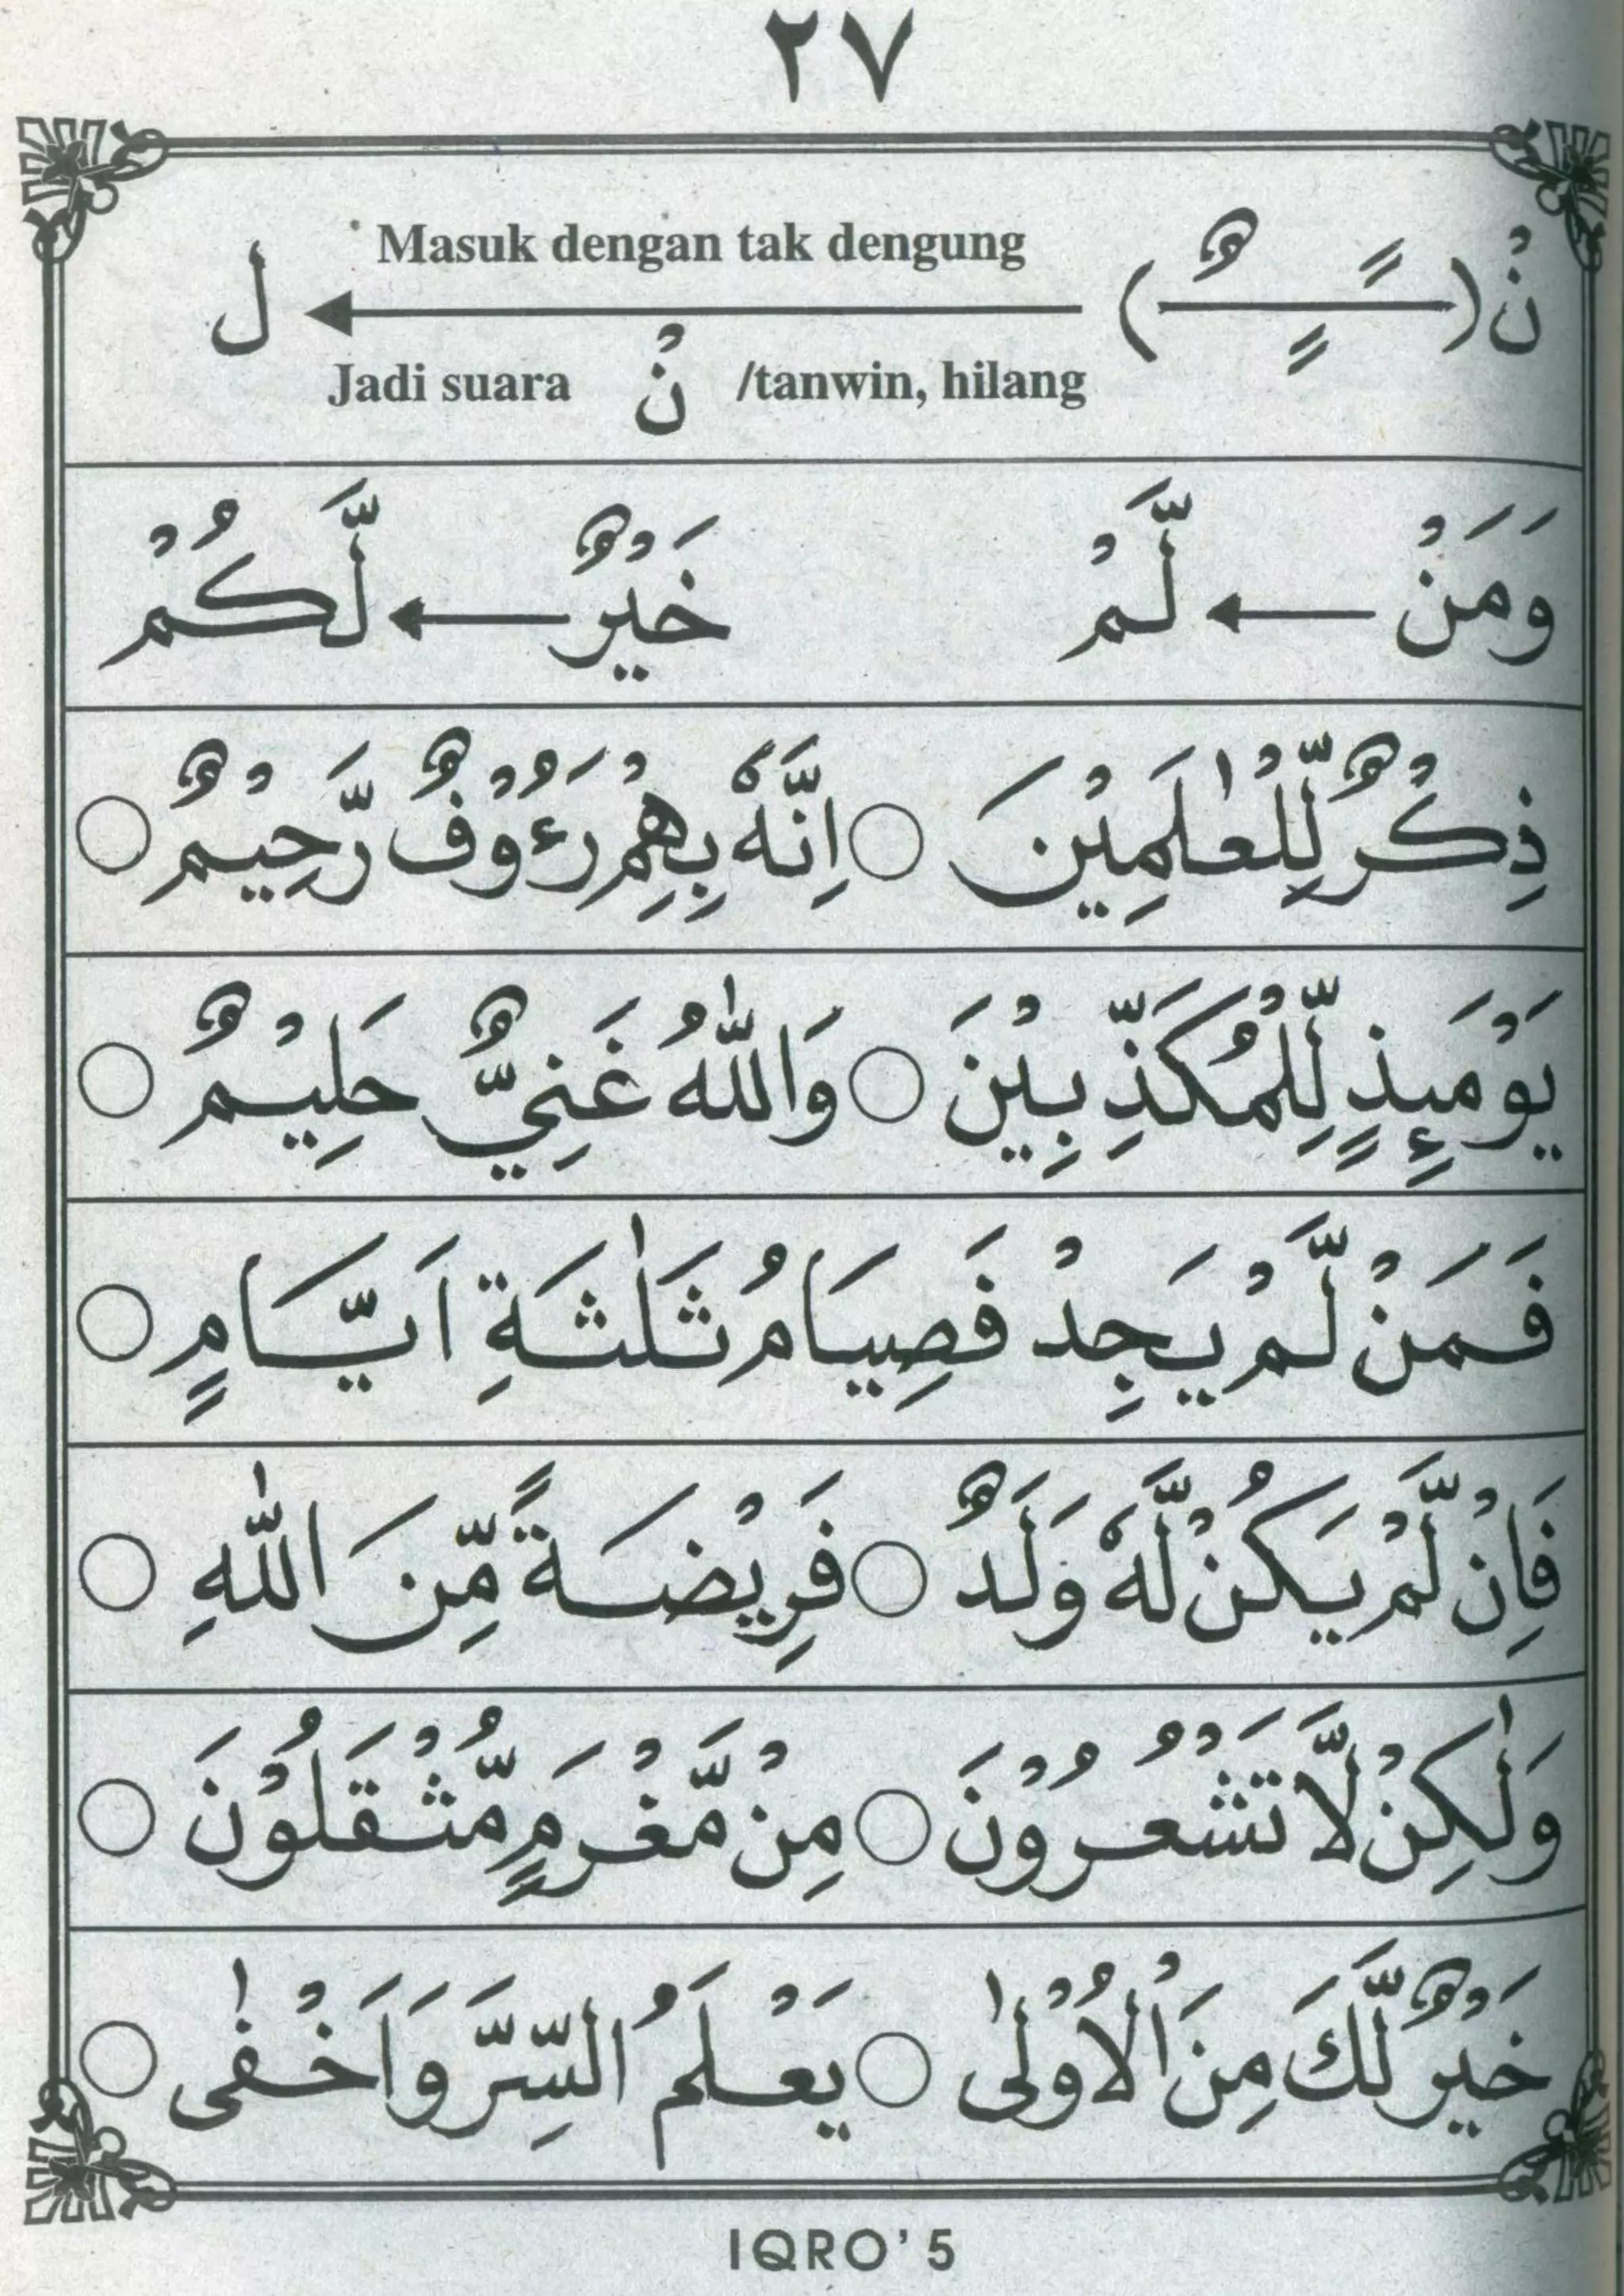 ٢٧
Masuk dengan tak dengung
نْ (ـًـٍـٌ) ← ل
Jadi suara نْ /tanwin, hilang
وَمَنْ ← لَّمْ خَيْرٌ ← لَّكُمْ
ذِكْرٌ لِّلْعٰلَمِيْنَ ○ اِنَّهٗ بِهِمْ رَءُوْفٌ رَّحِيْمٌ ○
يَوْمَىِٕذٍ لِّلْمُكَذِّبِيْنَ ○ وَاللّٰهُ غَنِيٌّ حَلِيْمٌ ○
فَمَنْ لَّمْ يَجِدْ فَصِيَامُ ثَلٰثَةِ اَيَّامٍ ○
فَاِنْ لَّمْ يَكُنْ لَّهٗ وَلَدٌ ○ فَرِيْضَةً مِّنَ اللّٰهِ ○
وَلٰكِنْ لَّا تَشْعُرُوْنَ ○ مِنْ مَّغْرَمٍ مُّثْقَلُوْنَ ○
خَيْرٌ لَّكَ مِنَ الْاُوْلٰى ○ يَعْلَمُ السِّرَّ وَاَخْفٰى ○
IQRO' 5